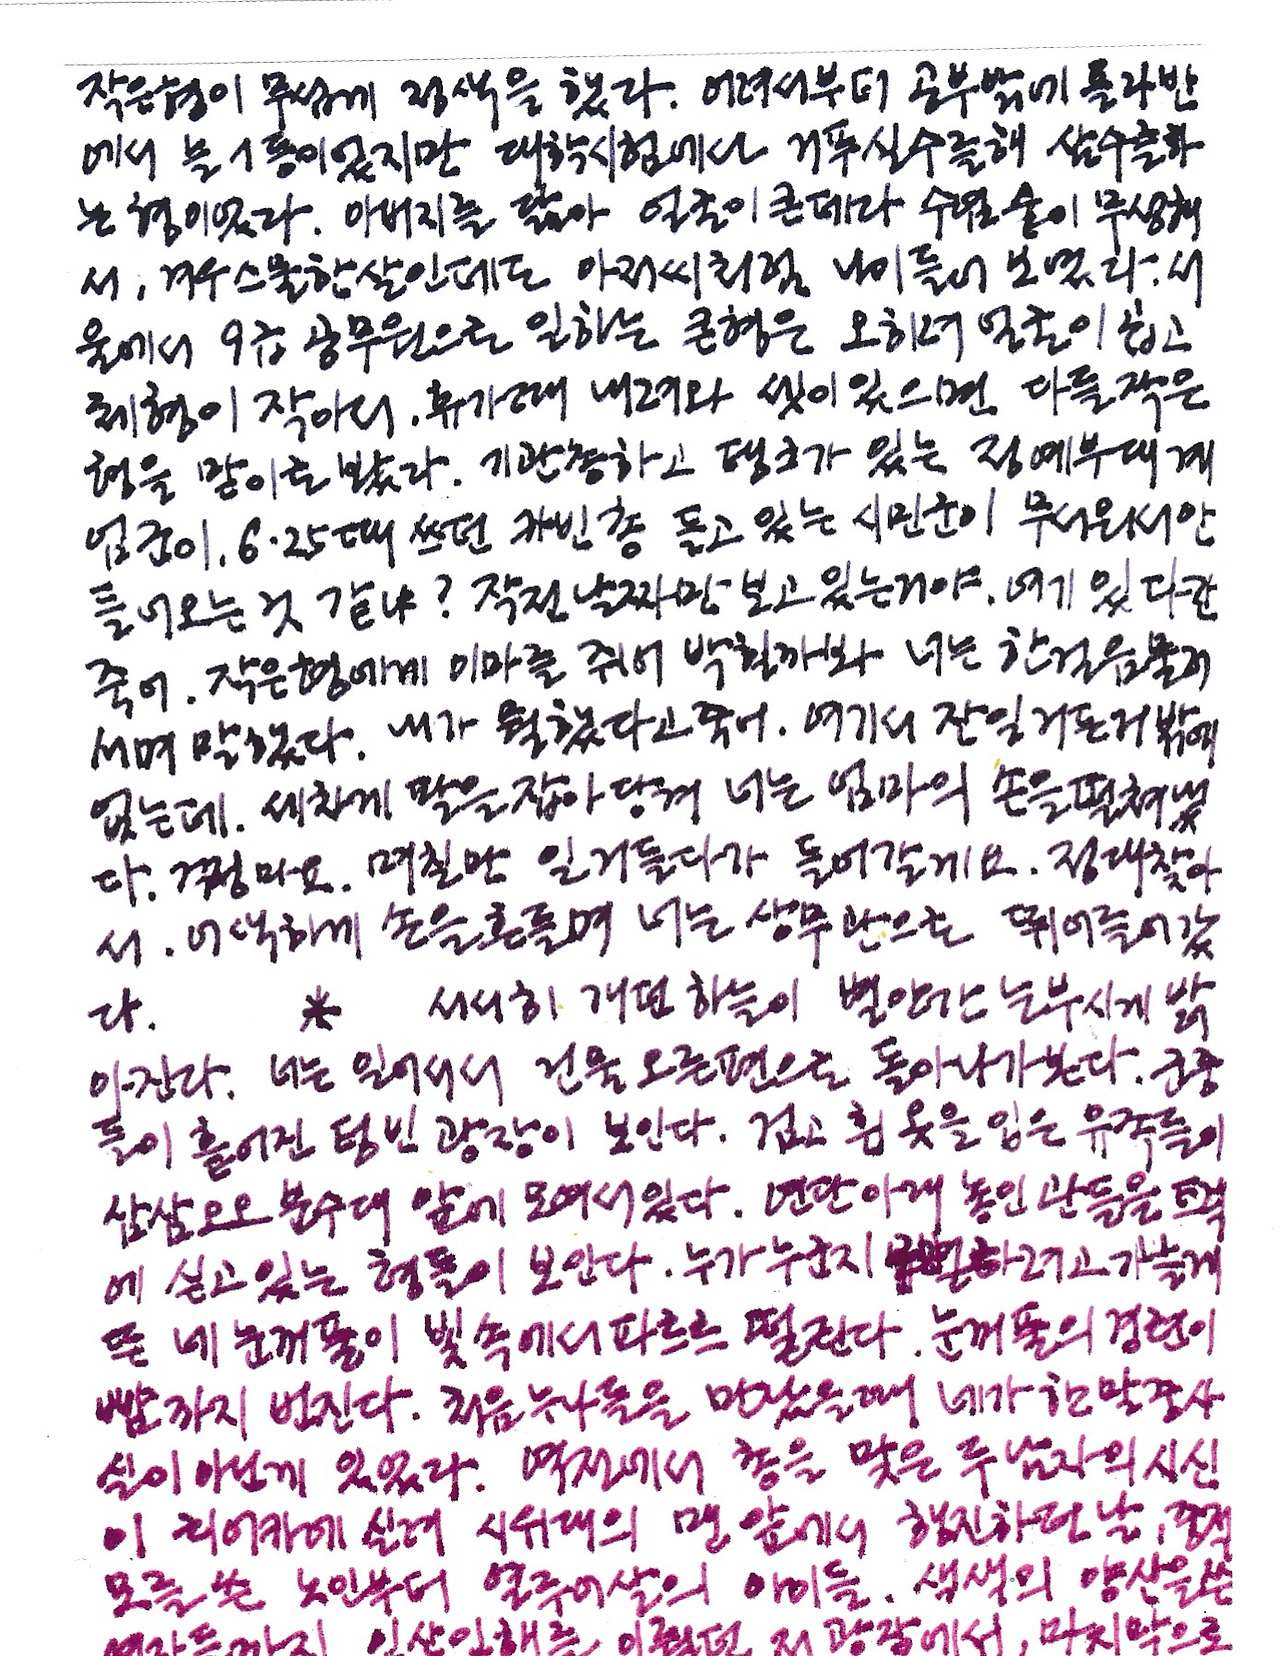 작은형이 무섭게 정색을 했다. 어려서부터 공부밖에 몰라 반
에서 늘 1등이었지만 대학시험에서 거푸 실수를 해 삼수를 하
는 형이었다. 아버지를 닮아 얼굴이 큰데다 수염 숱이 무성해
서, 겨우 스물한 살인데도 아저씨처럼 나이 들어 보였다. 서
울에서 9급 공무원으로 일하는 큰형은 오히려 얼굴이 곱고
체형이 작아서, 휴가 때 내려와 셋이 있으면 다들 작은
형을 맏이로 봤다. 기관총하고 탱크가 있는 정예부대 계
엄군이, 6·25 때 쓰던 카빈총 들고 있는 시민군이 무서워서 안
들어오는 것 같냐? 작전 날짜만 보고 있는거야. 여기 있다간
죽어. 작은형에게 이마를 쥐어박힐까봐 너는 한걸음 물러
서며 말했다. 내가 뭘 했다고 죽어. 여기서 잔일 거든 거 밖에
없는데. 세차게 팔을 잡아당겨 너는 엄마의 손을 떨쳐냈
다. 걱정 마요. 며칠만 일 거들다가 들어갈게요. 정대 찾아
서. 어색하게 손을 흔들며 너는 상무관으로 뛰어들어갔
다. * 서서히 개던 하늘이 별안간 눈부시게 밝
아진다. 너는 일어서서 건물 오른편으로 돌아나가본다. 군중
들이 흩어진 텅 빈 광장이 보인다. 검고 흰 옷을 입은 유족들이
삼삼오오 분수대 앞에 모여 서 있다. 연단 아래 놓인 관들을 트럭
에 싣고 있는 형들이 보인다. 누가 누군지 분별하려고 가늘게
뜬 네 눈꺼풀이 빛 속에서 파르르 떨린다. 눈꺼풀의 경련이
뺨까지 번진다. 처음 누나들을 만났을 때 네가 한 말 중 사
실이 아닌 게 있었다. 역전에서 총을 맞은 두 남자의 시신
이 리어카에 실려 시위대의 맨 앞에서 행진하던 날, 중절
모를 쓴 노인부터 열두어살의 아이들, 색색의 양산을 쓴
여자들까지 인산인해를 이뤘던 저 광장에서, 마지막으로